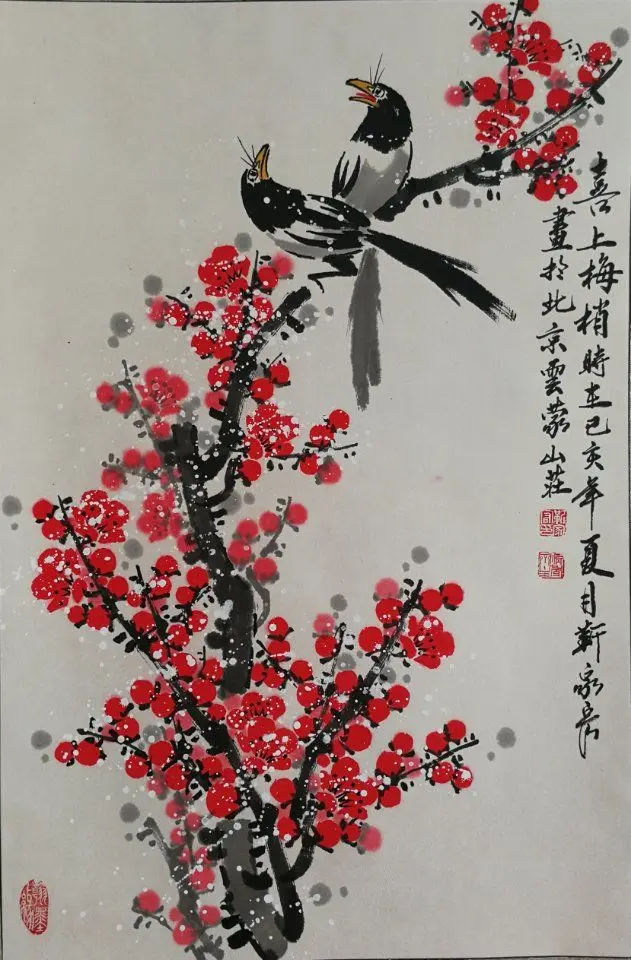 喜上梅梢時在己亥年夏月靳家房
畫於北京雲蒙山莊